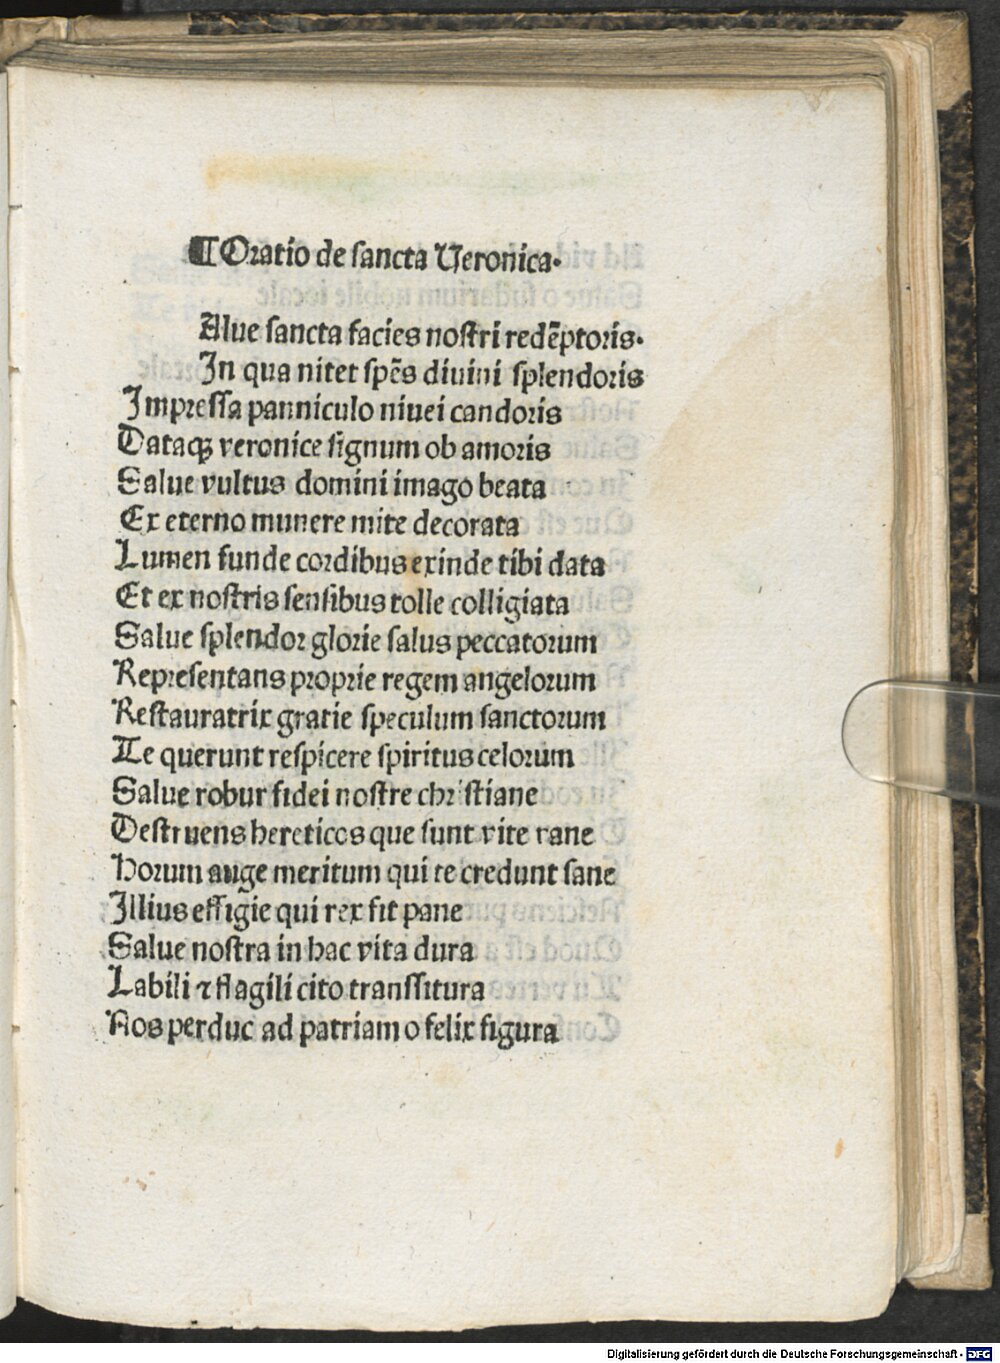 ¶Oratio de sancta Veronica.
Alue sancta facies nostri redēptoris.
In qua nitet spēs diuini splendoris
Impressa panniculo niuei candoris
Dataqꝫ veronice signum ob amoris
Salue vultus domini imago beata
Ex eterno munere mite decorata
Lumen funde cordibus exinde tibi data
Et ex nostris sensibus tolle colligiata
Salue splendor glorie salus peccatorum
Representans proprie regem angelorum
Restauratrix gratie speculum sanctorum
Te querunt respicere spiritus celorum
Salue robur fidei nostre christiane
Destruens hereticos que sunt vite vane
Horum auge meritum qui te credunt sane
Illius effigie qui rex fit pane
Salue nostra in hac vita dura
Labili ⁊ flagili cito transsitura
Nos perduc ad patriam o felix figura
Digitalisierung gefördert durch die Deutsche Forschungsgemeinschaft - DFG